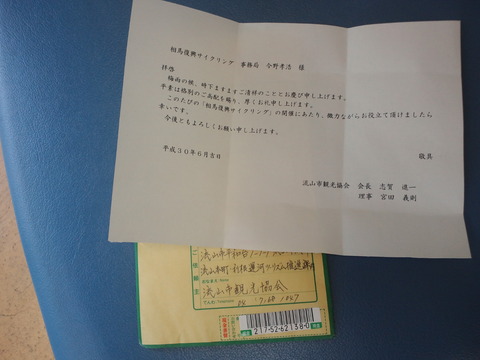 相馬復興サイクリング 事務局 今野孝浩 様
拝啓
梅雨の候、時下ますますご清祥のこととお慶び申し上げます。
平素は格別のご高配を賜り、厚くお礼申し上げます。
このたびの「相馬復興サイクリング」の開催にあたり、微力ながらお役立て頂けましたら
幸いです。
今後ともよろしくお願い申し上げます。
敬具
平成30年6月吉日
流山市観光協会 会長 志賀 道一
理事 宮田 義則
ご依頼主
流山市平和台
流山本町・利根運河ツーリズム推進課内
流山市観光協会
04
217-52-62138-0